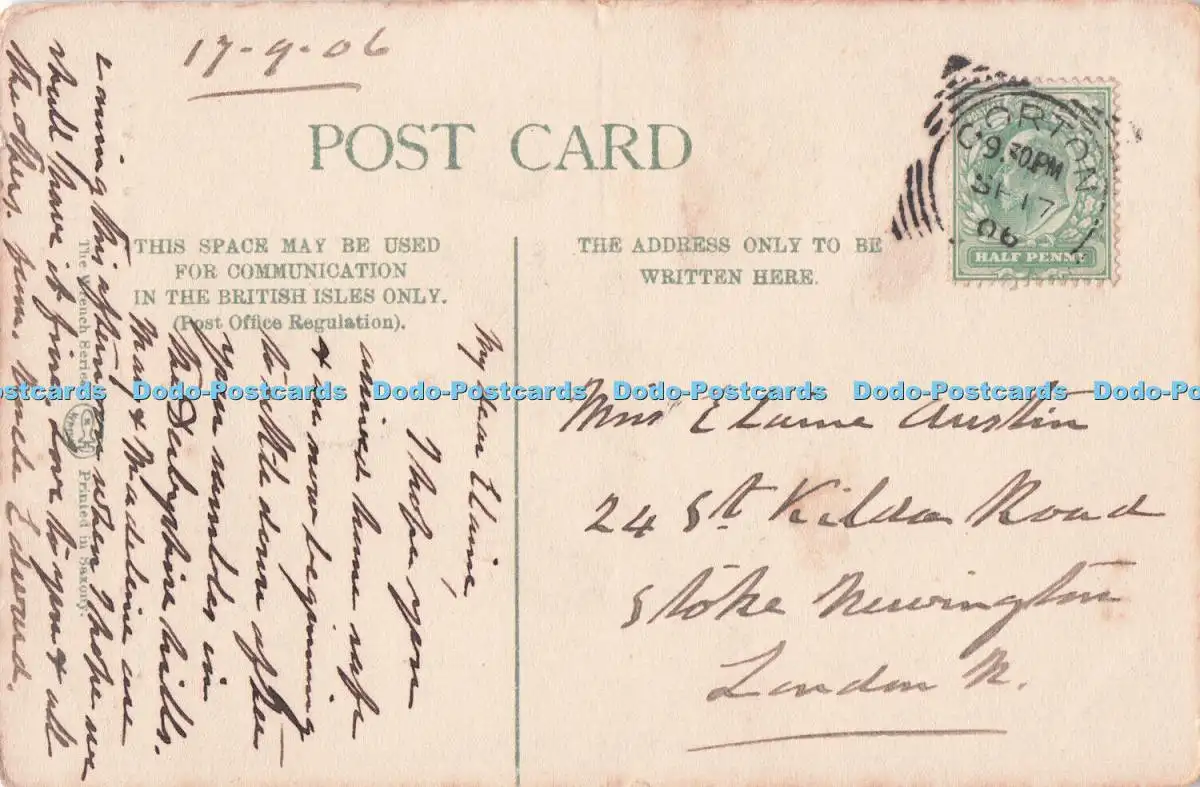 17-9-06
POST CARD
THIS SPACE MAY BE USED
FOR COMMUNICATION
IN THE BRITISH ISLES ONLY.
(Post Office Regulation).
THE ADDRESS ONLY TO BE
WRITTEN HERE.
GORTON
9.30PM
SP 17
06
HALF PENNY
My dear Elaine,
I hope you
arrived home safe
& are now beginning
to settle down after
your rambles in
the Derbyshire hills.
May & Madeline are
coming this afternoon when I hope we
shall have it fine. Love to you & all
the others. from Uncle Edward.
The Wrench Series
Printed in Saxony.
Miss Elaine Austin
24 St. Kilda Road
Stoke Newington
London N.
Dodo-Postcards Dodo-Postcards Dodo-Postcards Dodo-Postcards Dodo-Postcards